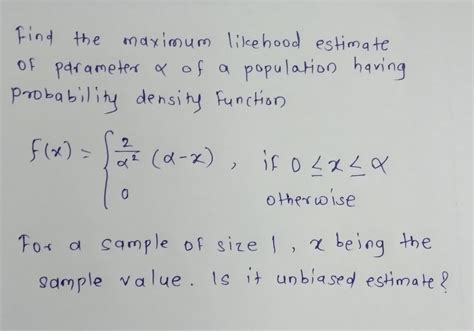 Find the maximum likehood estimate
of parameter α of a population having
probability density function
f(x) = { 2/α² (α-x) , if 0 ≤ x ≤ α
0 otherwise
For a sample of size 1, x being the
sample value. Is it unbiased estimate?